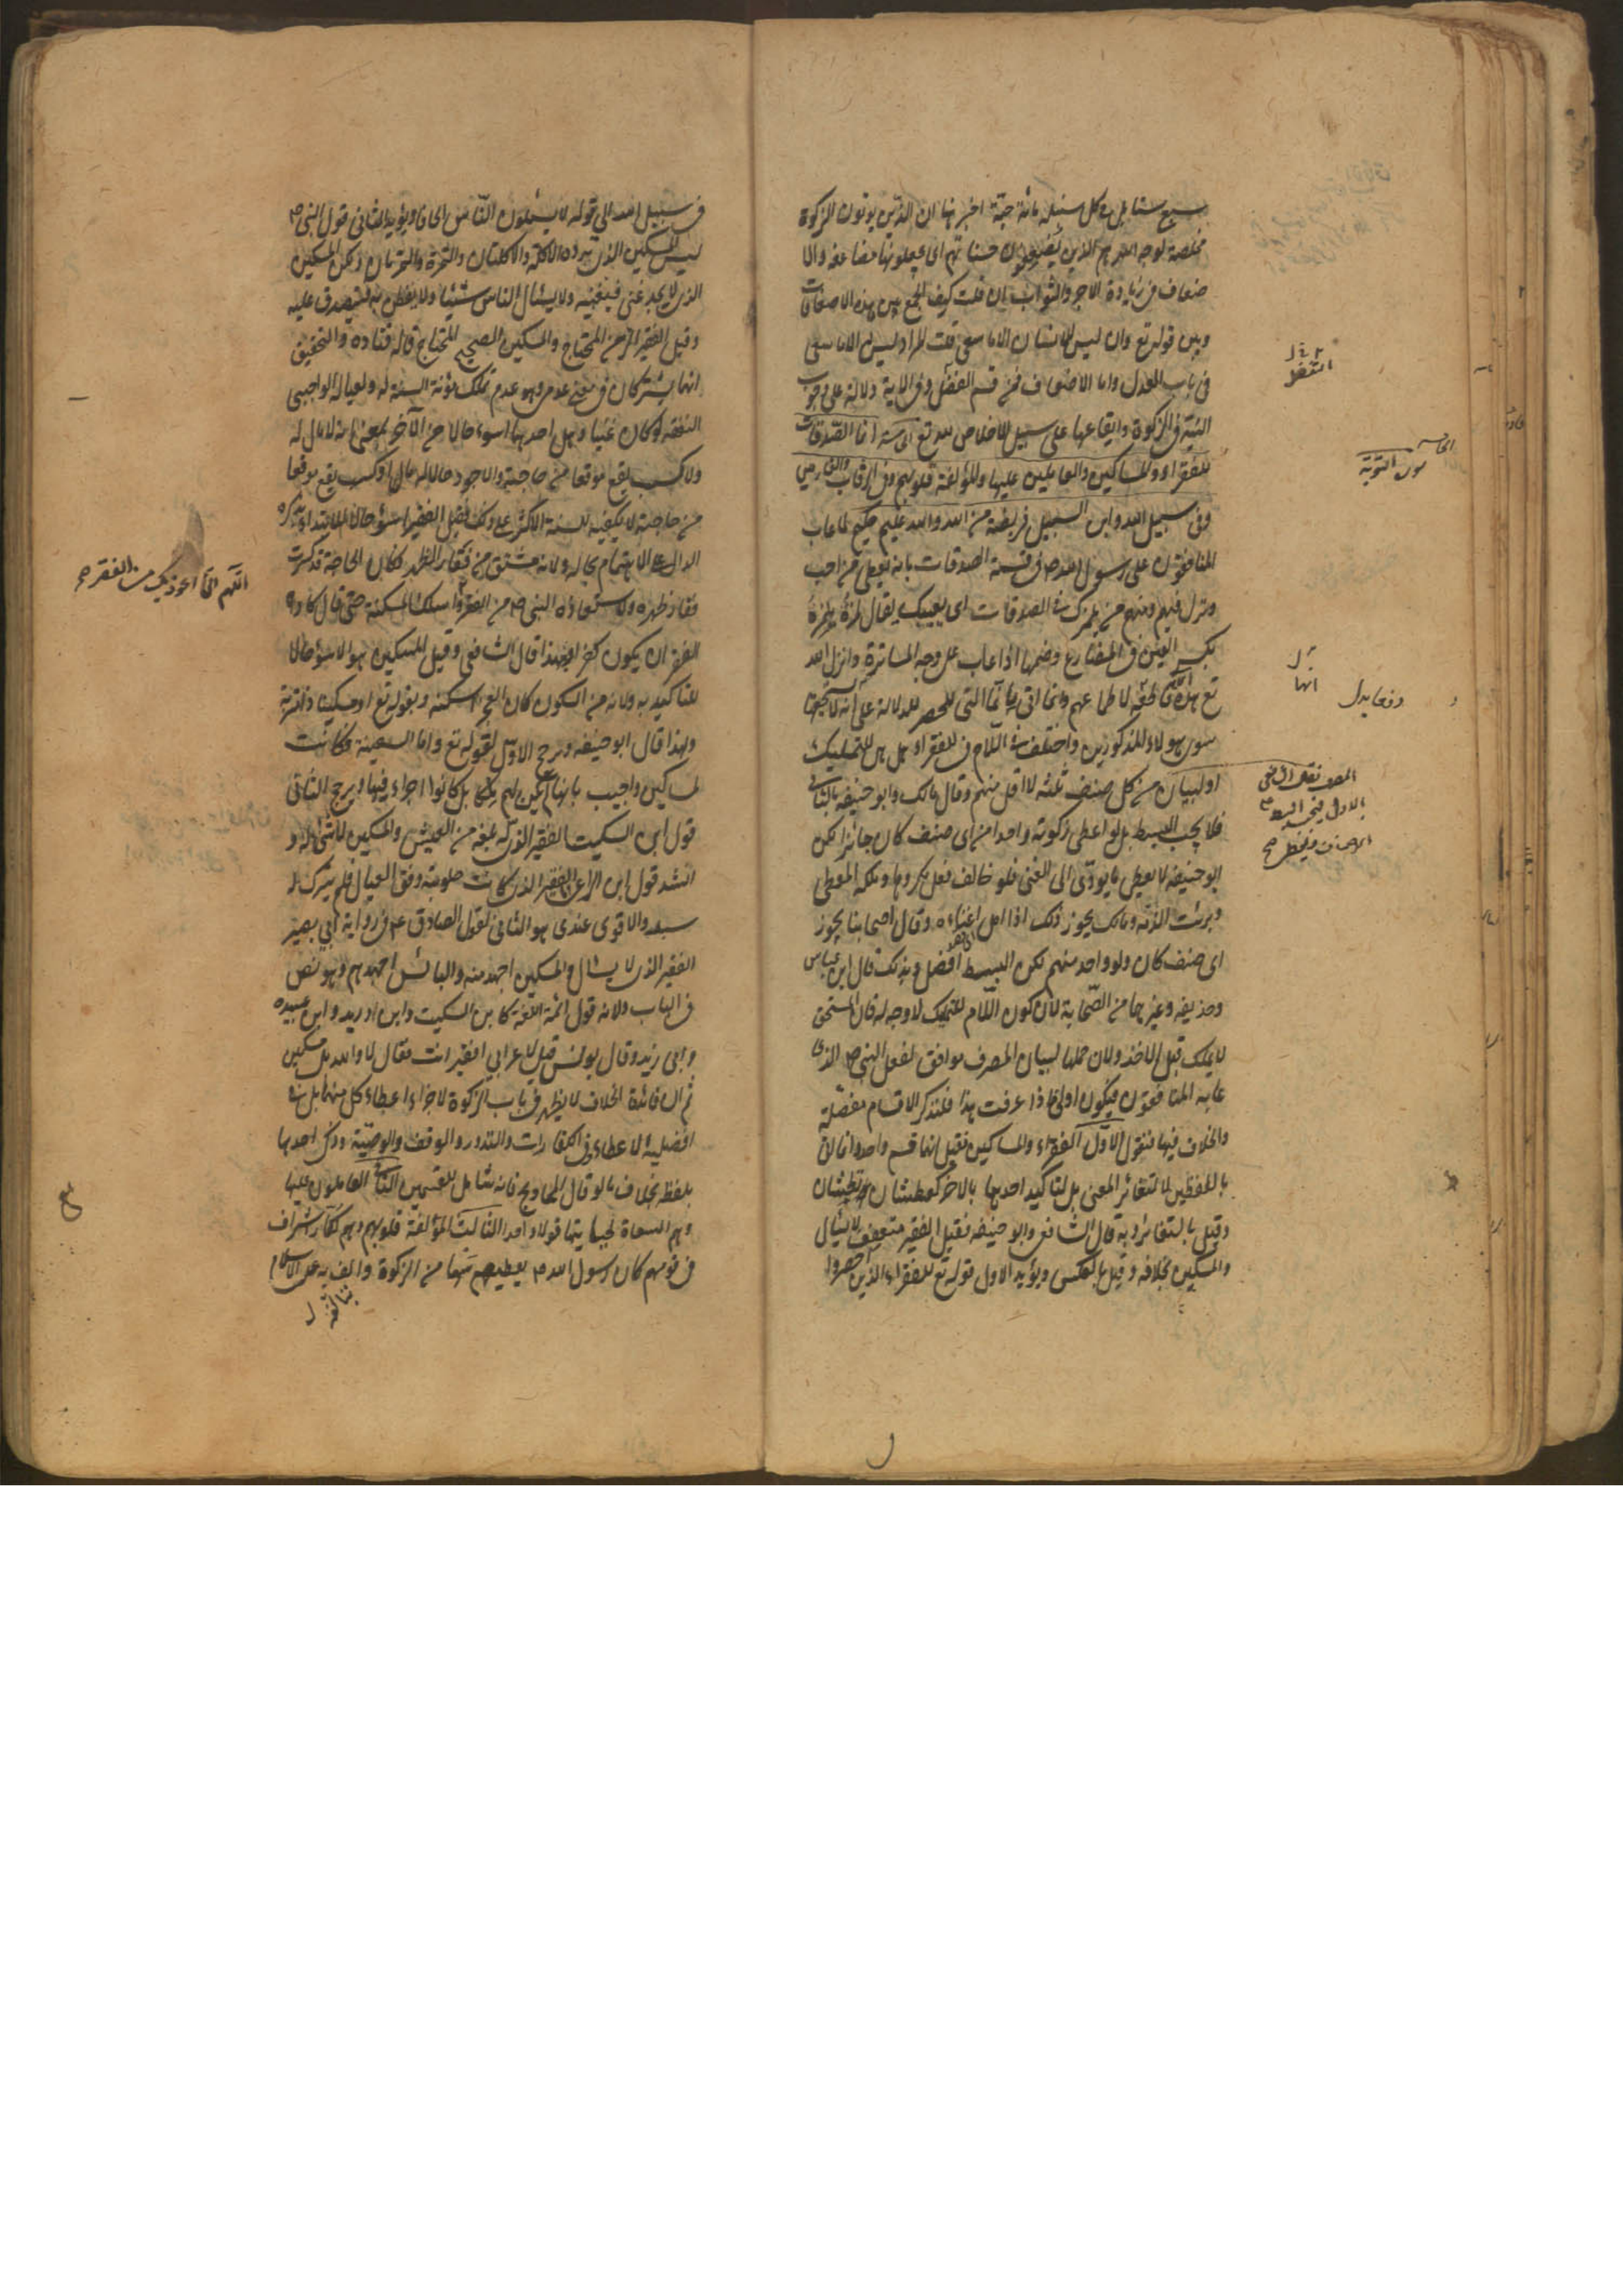 سبع سنابل فی كل سنبلة مائة حبّة اخبر نها ان الذین یوتون الزكوة
مخلصة لوجه الله هم الذین یُضعِفون حسناتهم ای یجعلونها مضاعفة والا
ضعاف فی زیادة الاجر والثواب ان قلت كیف الجمع بین هذه الاضعافات
وبین قوله تع وان لیس للانسان الا ما سعی قلت المراد لیس له الا ما سعی
فی باب العدل واما الاضعاف فمن قسم الفضل وفی الایة دلالة علی وجوب
النیة فی الزكوة وایقاعها علی سبیل الاخلاص لله تع انما الصّدقات
للفقراء والمساكین والعاملین علیها والمؤلفة قلوبهم وفی الرقاب والغارمین
وفی سبیل الله وابن السبیل فریضة من الله والله علیم حكیم لما عاب
المنافقون علی رسول الله ص فی قسمة الصدقات بانه یعطی من احب
ونزل فیهم ومنهم من یلمزك فی الصدقات ای یعیبك یقال لمزهُ یلمزهُ
بكسر العین فی المضارع وضمها اذا عاب علی وجه المساترة وانزل الله
تع هذه الایة قاطعة لاطماعهم وانما اتی بانّما التی للحصر للدلالة علی انه لا یستحقها
سوی هولاء المذكورین واختلف فی اللام فی للفقراء هل هی للتملیك
او لبیان من كل صنف ثلثة لا اقل منهم وقال مالك وابو حنیفه بالثانی
فلا یجب البسط بل لو اعطی زكوته واحدا من ای صنف كان جائزا لكن
ابو حنیفه لا یعطی ما یودّی الی الغنی فلو خالف فعل مكروها وملكه المعطی
وبرئت الذمّة ومالك یجوز ذلك اذا امل اغناءه وقال اصحابنا یجوز
ای صنف كان ولو واحد منهم لكن البسط افضل وبذلك قال ابن عباس
وحذیفه وغیرهما من الصّحابة لان كون اللّام للتملیك لاوجه له فان المستحق
لایملك قبل الاخذ ولان حملها لبیان المصرف موافق لفعل النبی ص الذی
عابه المنافقون فیكون اولی اذا عرفت هذا فلنذكر الاقسام مفصّلة
والخلاف فیها فنقول الاوّل الفقراء والمساكین فقیل انهما قسم واحد وانما اتی
باللفظین لا لتغائر المعنی بل لتاكید احدهما بالاخر كعطشان ونطشان
وقیل بالتغائر وبه قال الشافعی وابو حنیفه فقیل الفقیر متعفف لا یسأل
والمسكین بخلافه وقیل بالعكس ویؤید الاول قوله تع للفقراء الذین احصروا
التفضل
سورة التوبة
انها
المص نقل الرافعی
فی سبیل الله الی قوله لا یسئلون النّاس الحافا ویؤید الثانی قول النبی ص
لیس المسكین الذی یرده الاكلة والاكلتان والتمرة والتمرتان ولكن المسكین
الذی لا یجد غنی فیغنیه ولا یسئال الناس شیئا ولا یفطن به فیتصدق علیه
وقیل الفقیر الزمن المحتاج والمسكین الصحیح المحتاج قاله قتاده والتحقیق
انهما یشتركان فی معنی عدمی وهو عدم تملك مؤنة السنة له ولعیاله الواجبی
النفقة لو كان غنیا وهل احدهما اسوء حالا من الآخر بمعنی انه لا مال له
ولا كسب یقع موقعا من حاجته والاجود حالا له مال او كسب یقع موقعا
من حاجته لا یكفیه للسنة الاكثر علی ذلك فقیل الفقیر اسوء حالا للابتداء بذكره
الدال علی الاهتمام بحاله ولانه مشتق من فقار الظهر فكان الحاجة قد كسرت
فقار ظهره ولاستعاذة النبی ص من الفقر واسأله المسكنة حتی قال كاد
الفقر ان یكون كفرا وبهذا قال الشافعی وقیل المسكین هو الاسؤ حالا
للتاكید به ولانه من السكون كان العجز اسكنه وبقوله تع او مسكینا ذا متربة
وبهذا قال ابو حنیفه ورجح الاوّل لقوله تع واما السفینة فكانت
لمساكین واجیب بانها لم یكن لهم ملكا بل كانوا اجراء فیها ویرجح الثانی
قول ابن السكیت الفقیر الذی له بلغة من العیش والمسكین لا شئ له و
انشد قول ابن الراعی الفقیر الذی كانت حلوبته وفق العیال فلم یترك له
سبد والاقوی عندی هو الثانی لقول الصادق ع فی روایة ابی بصیر
الفقیر الذی لا یسئال والمسكین اجهد منه والبائس اجهدهم وهو نص
فی الباب ولانه قول ائمة اللغة كابن السكیت وابن درید وابن عبیده
وابی زید وقال یونس قیل لاعرابی افقیر انت فقال لا والله بل مسكین
ثم ان فائدة الخلاف لا یظهر فی باب الزكوة لاجزاء اعطاء كل منهما بل فی
افضلیة الاعطاء وفی الكفارات والنذور والوقف والوصیّة وذكر احدهما
بلفظ بخلاف ما لو قال المحاویج فانه شامل للقسمین الثانی العاملون علیها
وهم السعاة لجبایتها قولا واحدا الثالث المؤلفة قلوبهم وهم كفار اشراف
فی قومهم كان رسول الله ص یعطیهم سهما من الزكوة والف به علی الاسلام
اللّهم انی اعوذ بك من الفقر صح